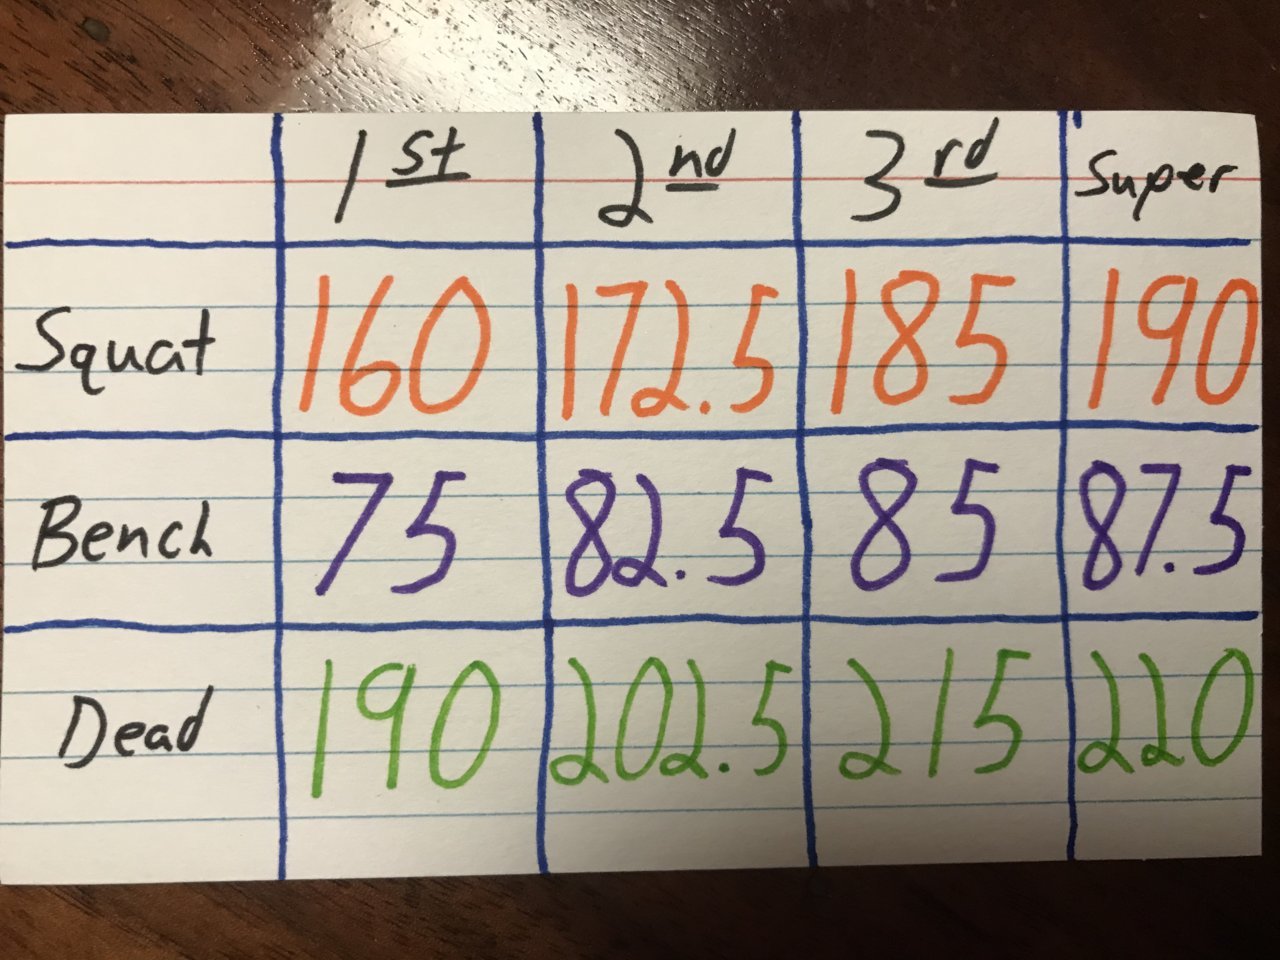 1st 2nd 3rd Super
Squat 160 172.5 185 190
Bench 75 82.5 85 87.5
Dead 190 202.5 215 220